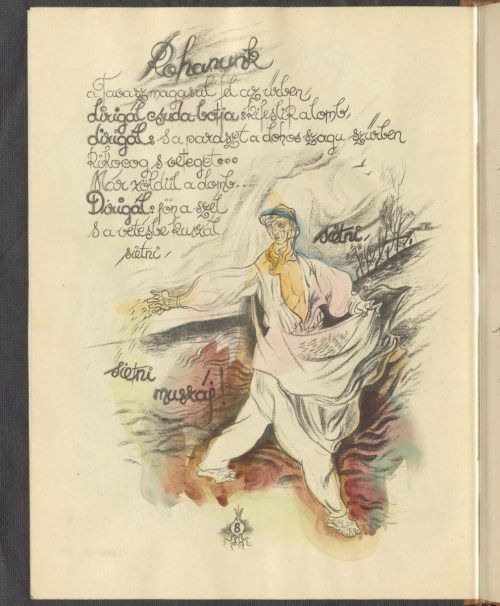 Rohanunk
a Tavasz magasul fel az űrben,
dirigál csuda botja: kifeslik a lomb,
dirigál: s a paraszt a dohos szagu szűrben
kikocog s veteget...
Már zöldül a domb...
Dirigál: jön a szél
s a vetésbe kuszál
sietni,
sietni,
sietni
muszáj!
8